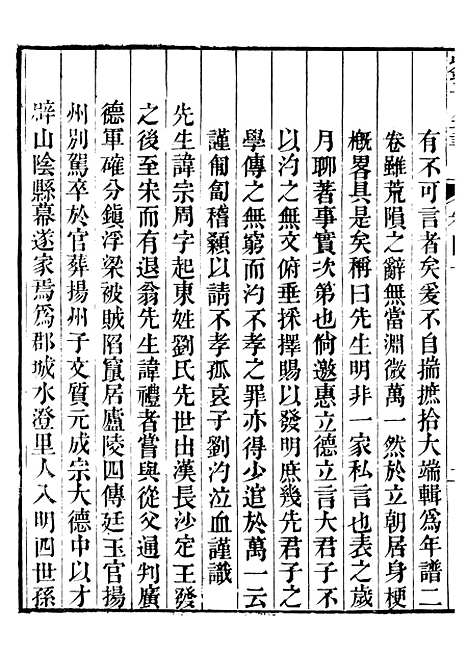 有不可言者矣爰不自揣摭拾大端輯爲年譜二
卷雖荒隕之辭無當淵微萬一然於立朝居身梗
槪畧具是矣稱曰先生明非一家私言也表之歲
月聊著事實次第也倘邀惠立德立言之君子不
以汋之無文俯垂採擇賜以發明庶幾先君子之
學傳之無窮而汋不孝之罪亦得少逭於萬一云
謹匍匐稽顙以請不孝孤哀子劉汋泣血謹識
先生諱宗周字起東姓劉氏先世出漢長沙定王發
之後至宋而有退翁先生諱禮者嘗與從父通判廣
德軍確分鎭浮梁被賊陷竄居廬陵四傳廷玉官揚
州別駕卒於官葬揚州子文質元成宗大德中以才
辟山陰縣幕遂家焉爲郡城水澄里人入明四世孫